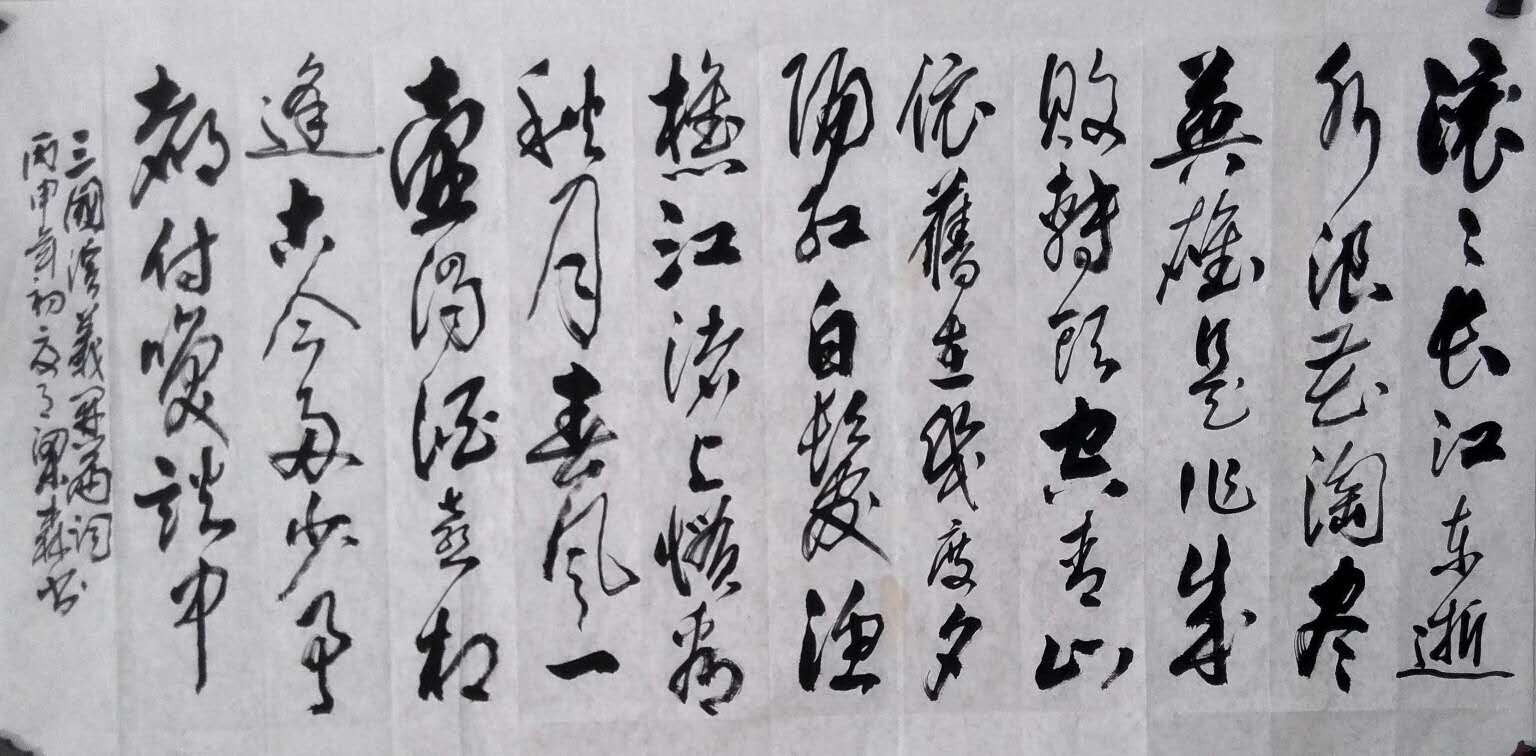 滚〻长江东逝
水浪花淘尽
英雄是非成
败轉头空青山
依舊在幾度夕
陽红白髮渔
樵江渚上惯看
秋月春风一
壶濁酒喜相
逢古今多少事
都付笑談中
三國演義开篇词
丙申年初夏梁森书